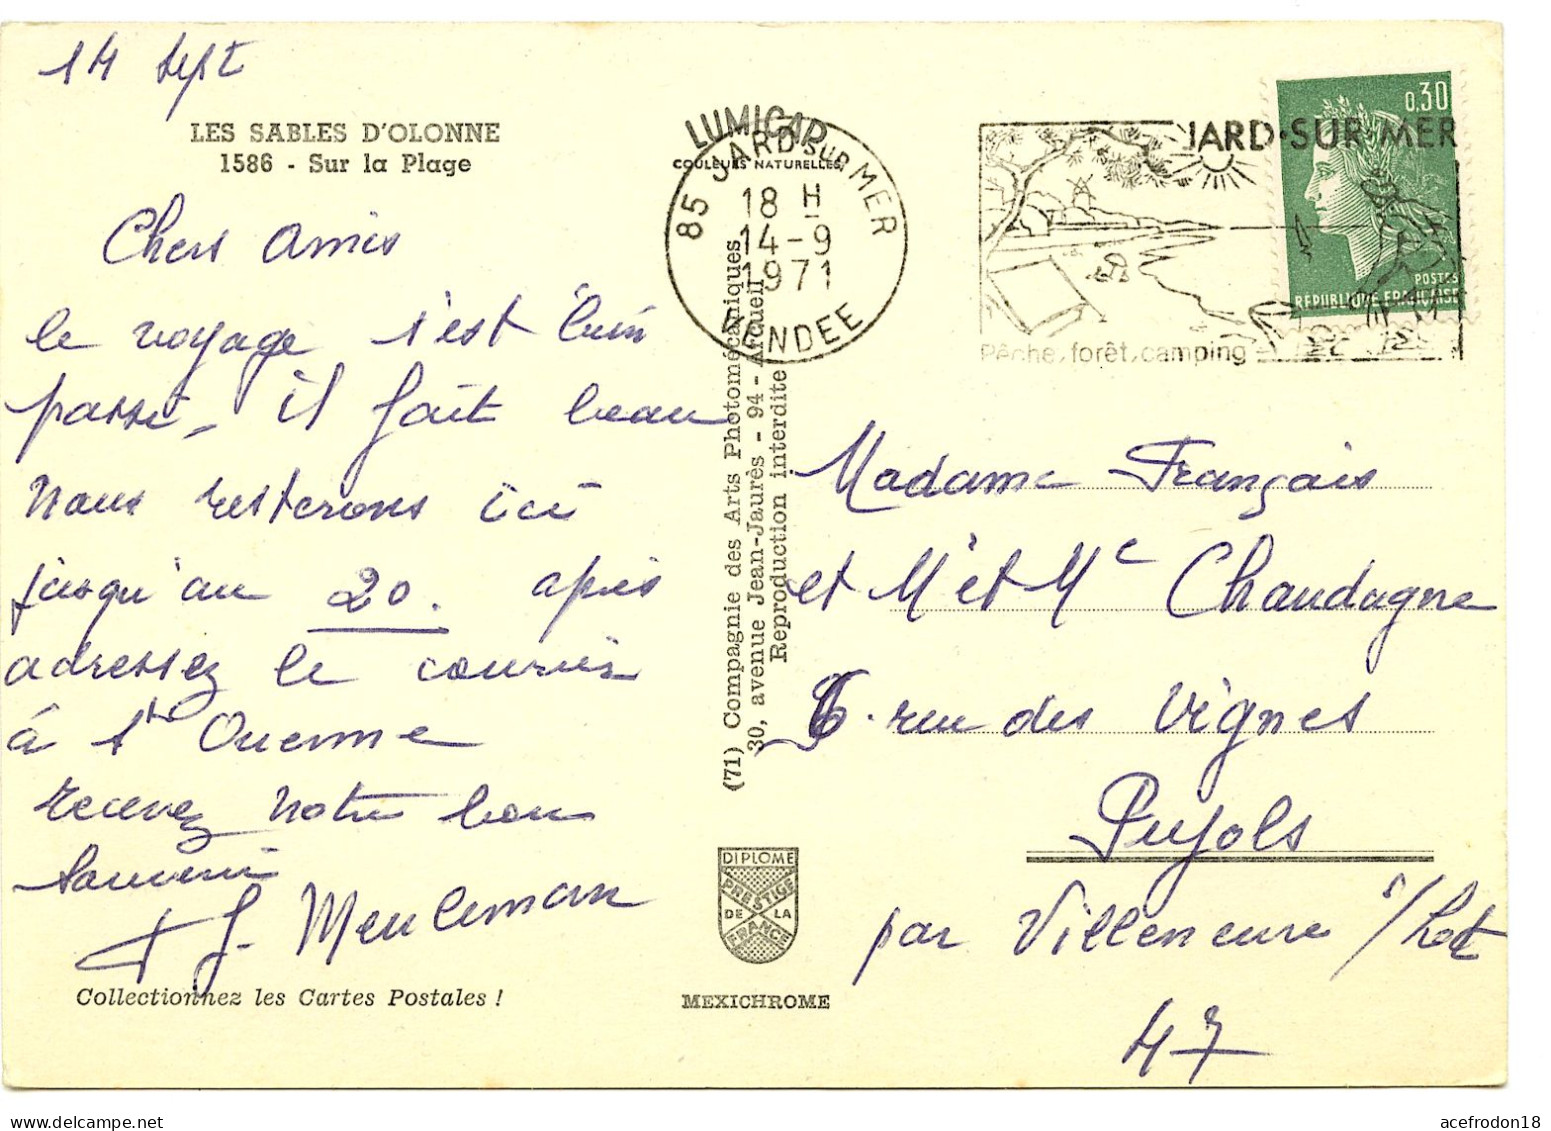 14 Sept
LES SABLES D'OLONNE
1586 - Sur la Plage
Chers amis
le voyage s'est bien
passé, il fait beau
nous resterons ici
jusqu'au 20. après
adressez le courrier
à Ste Ouenne
recevez notre bon
Souvenir
J. Meuleman
Collectionnez les Cartes Postales !
LUMICAP
COULEURS NATURELLES
85 JARD SUR MER
18 H
14-9
1971
VENDEE
(71) Compagnie des Arts Photomécaniques
30, avenue Jean-Jaurès - 94 - Arcueil
Reproduction interdite
DIPLOME
PRESTIGE
DE LA
FRANCE
MEXICHROME
JARD·SUR·MER
Pêche, forêt, camping
0,30
POSTES
REPUBLIQUE FRANÇAISE
Madame Français
et Mr et Me Chaudagne
6. rue des Vignes
Pujols
par Villeneuve s/Lot
47
acefrodon18